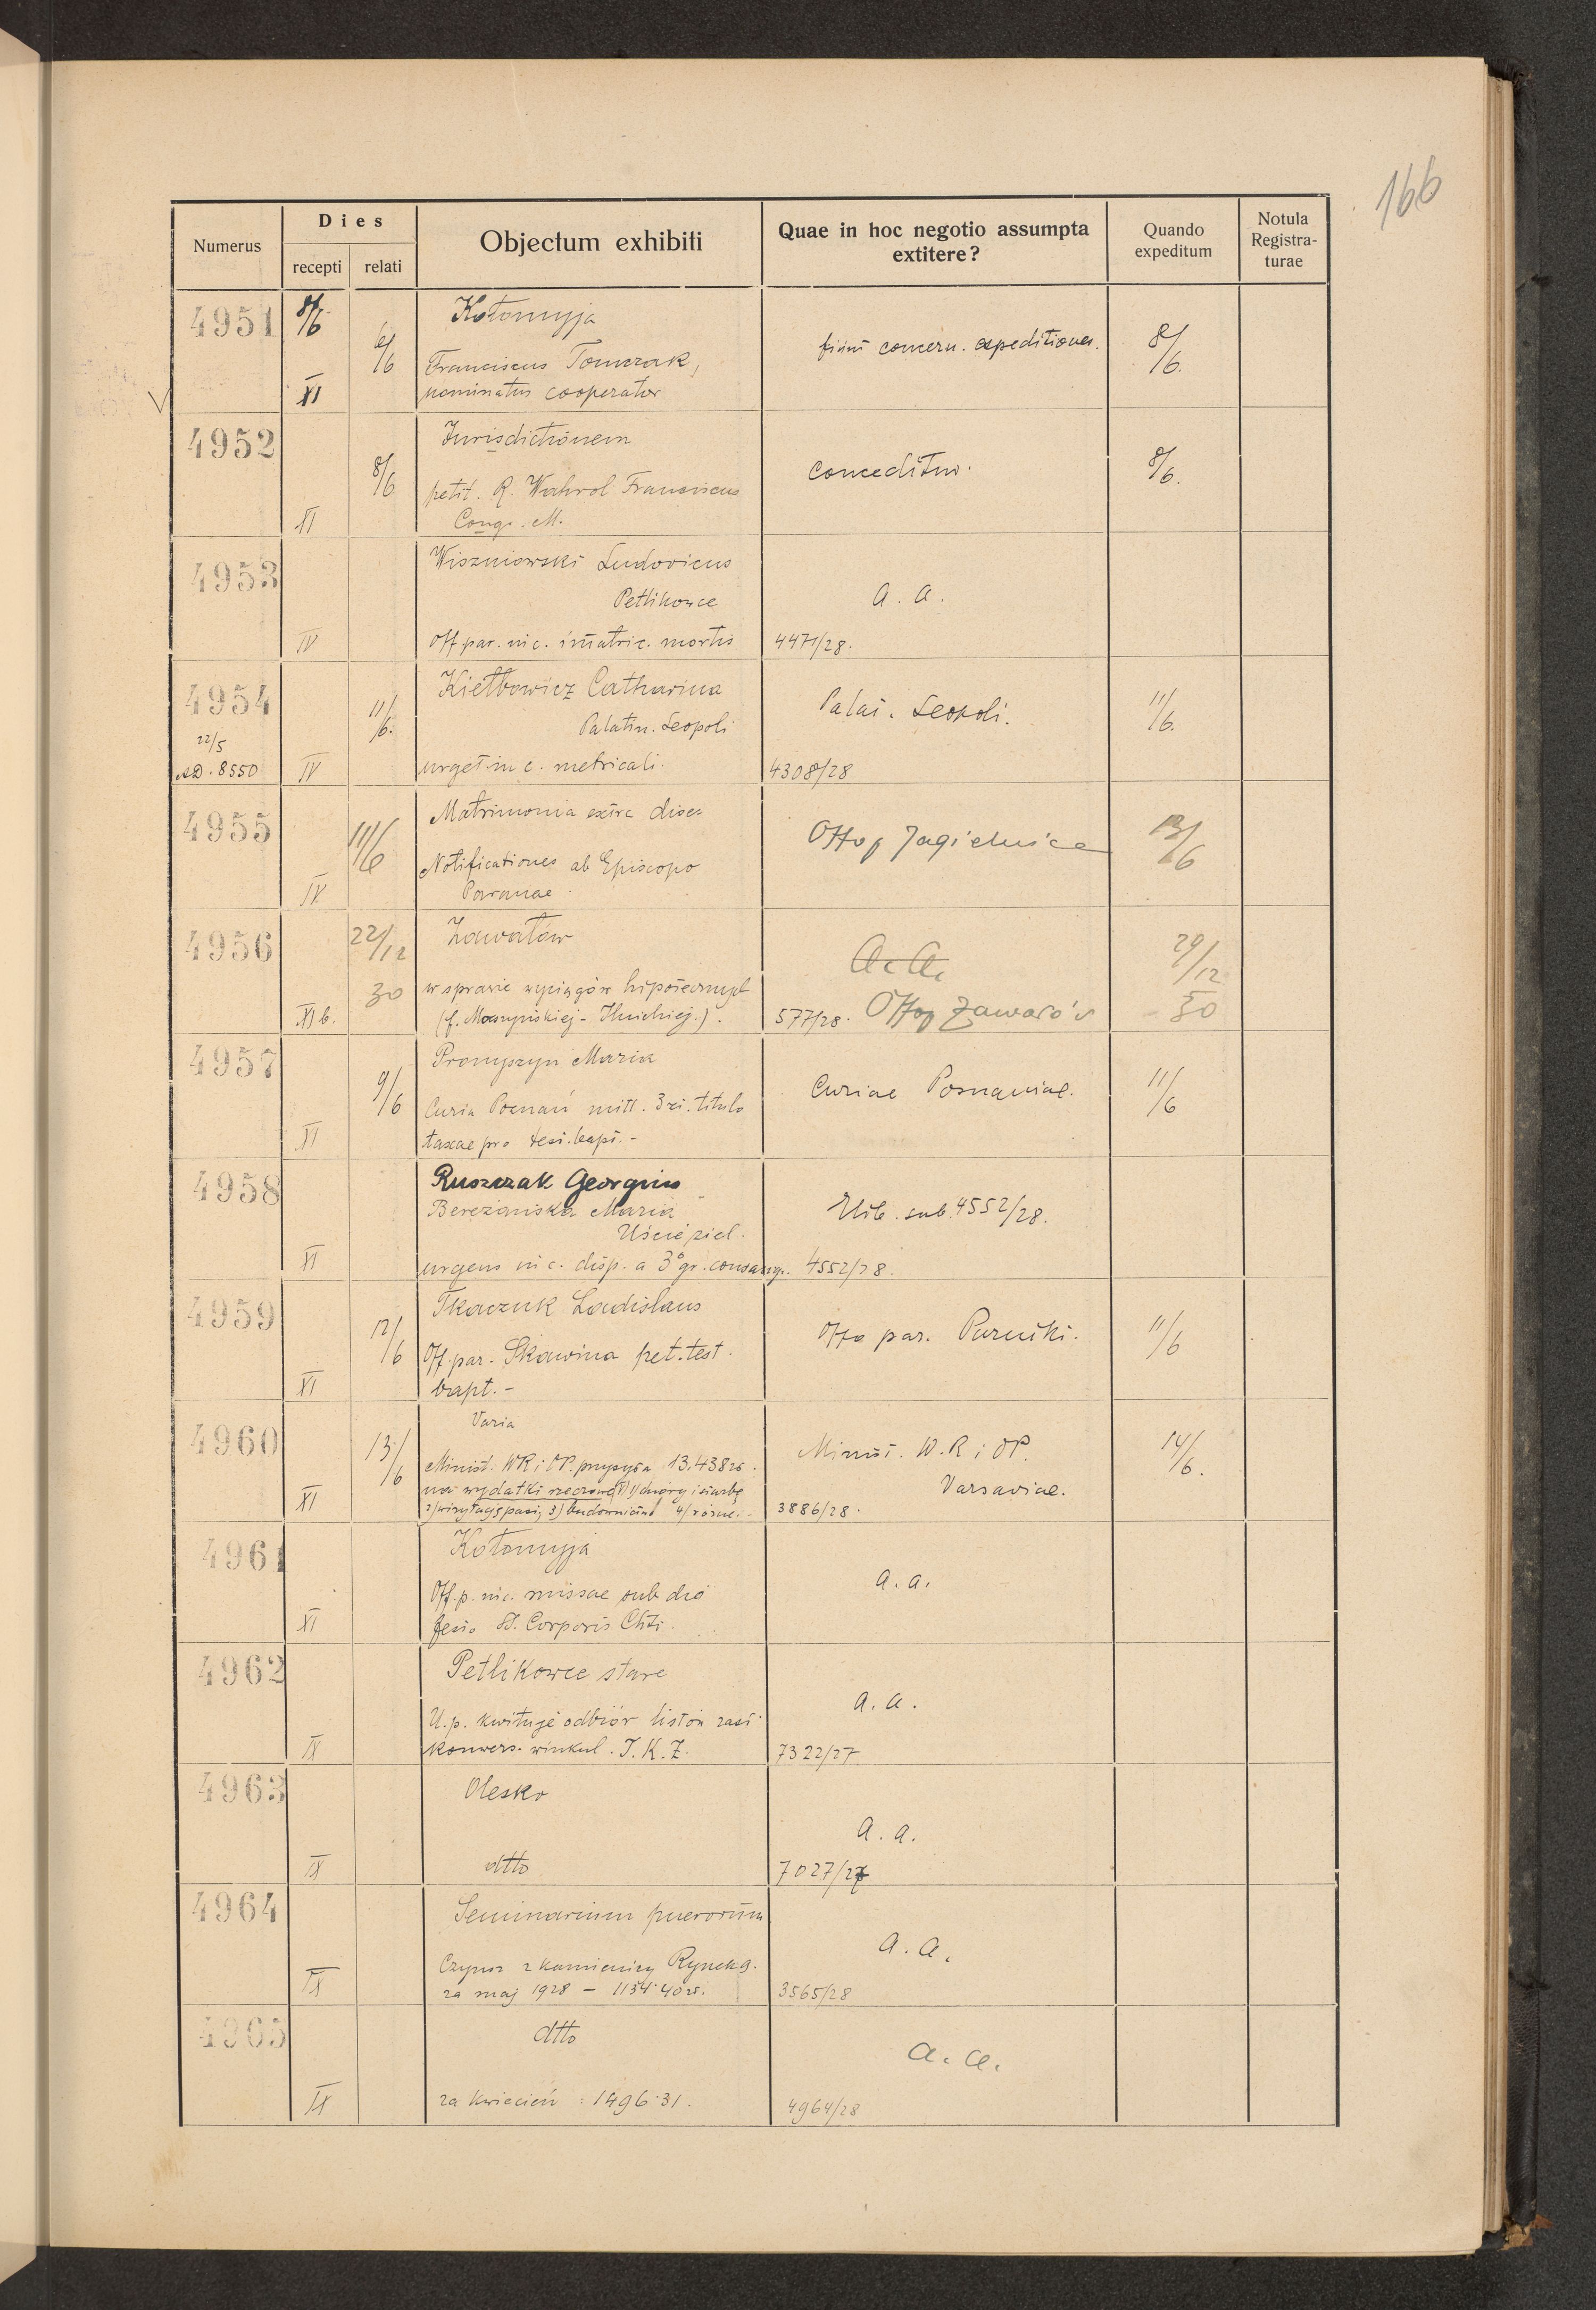 166
Numerus
Dies
recepti
relati
Objectum exhibiti
Quae in hoc negotio assumpta
extitere?
Quando
expeditum
Notula
Registra-
turae
4951
8/6
XI
6/6
Kołomyja
Franciscus Tomczak,
nominatus cooperator
fiunt concern. expeditiones.
8/6.
4952
XI
8/6
Jurisdictionem
petit. R. Franciscus
Congr. M.
Conceditur.
8/6.
4953
IV
Wiszniowski Ludovicus
Petlikowce
Off par. in c. imatric. mortis
a. a.
4471/28.
4954
22/5
AD. 8550
IV
11/6.
Kiełbowicz Catharina
Palatin. Leopoli
urget in c. metricali.
Palat. Leopoli.
4308/28
11/6.
4955
IV
11/6
Matrimonia extra dioec
Notificationes ab Episcopo
Paranae.
Offo p Jagielnica
13/6
4956
XI b.
22/12
30
Zawałów
w sprawie wyciągów hipotecznych
a. a.
577/28. Offop Zawałów
29/12
30
4957
XI
9/6
Maria
Curia Poznań mitt. 3 zł. titulo
taxae pro test. bapt. -
Curiae Posnaniae.
11/6
4958
XI
Ruszczak Georgius
Bereżańska Maria
Uście ziel.
urgens in c. disp. a 3° gr. consang. 4552/28.
Elib. sub. 4552/28.
4959
XI
12/6
Tkaczuk Ladislaus
Off. par. Skawina pet. test.
bapt. -
Offo par.
11/6
4960
XI
13/6
Varia
Minist. WR i OP. przysyła 13.438 zł.
na wydatki rzeczowe
Minist. W.R i OP.
Varsaviae.
3886/28.
14/6.
4961
XI
Kołomyja
Off. p. in c. missae sub dio
festo SS. Corporis Chti.
a. a.
4962
IX
Petlikowce stare
U. p. kwituje odbiór listów zast
konwers. winkul. T. K. Z.
a. a.
7322/27
4963
IX
Olesko
dtto
a. a.
7027/27
4964
IX
Seminarium puerorum
Czynsz z kamienicy Rynek 9.
za maj 1928 — 1134.40 zł.
a. a.
3565/28
4965
IX
dtto
za kwiecień : 1496.31.
a. a.
4964/28